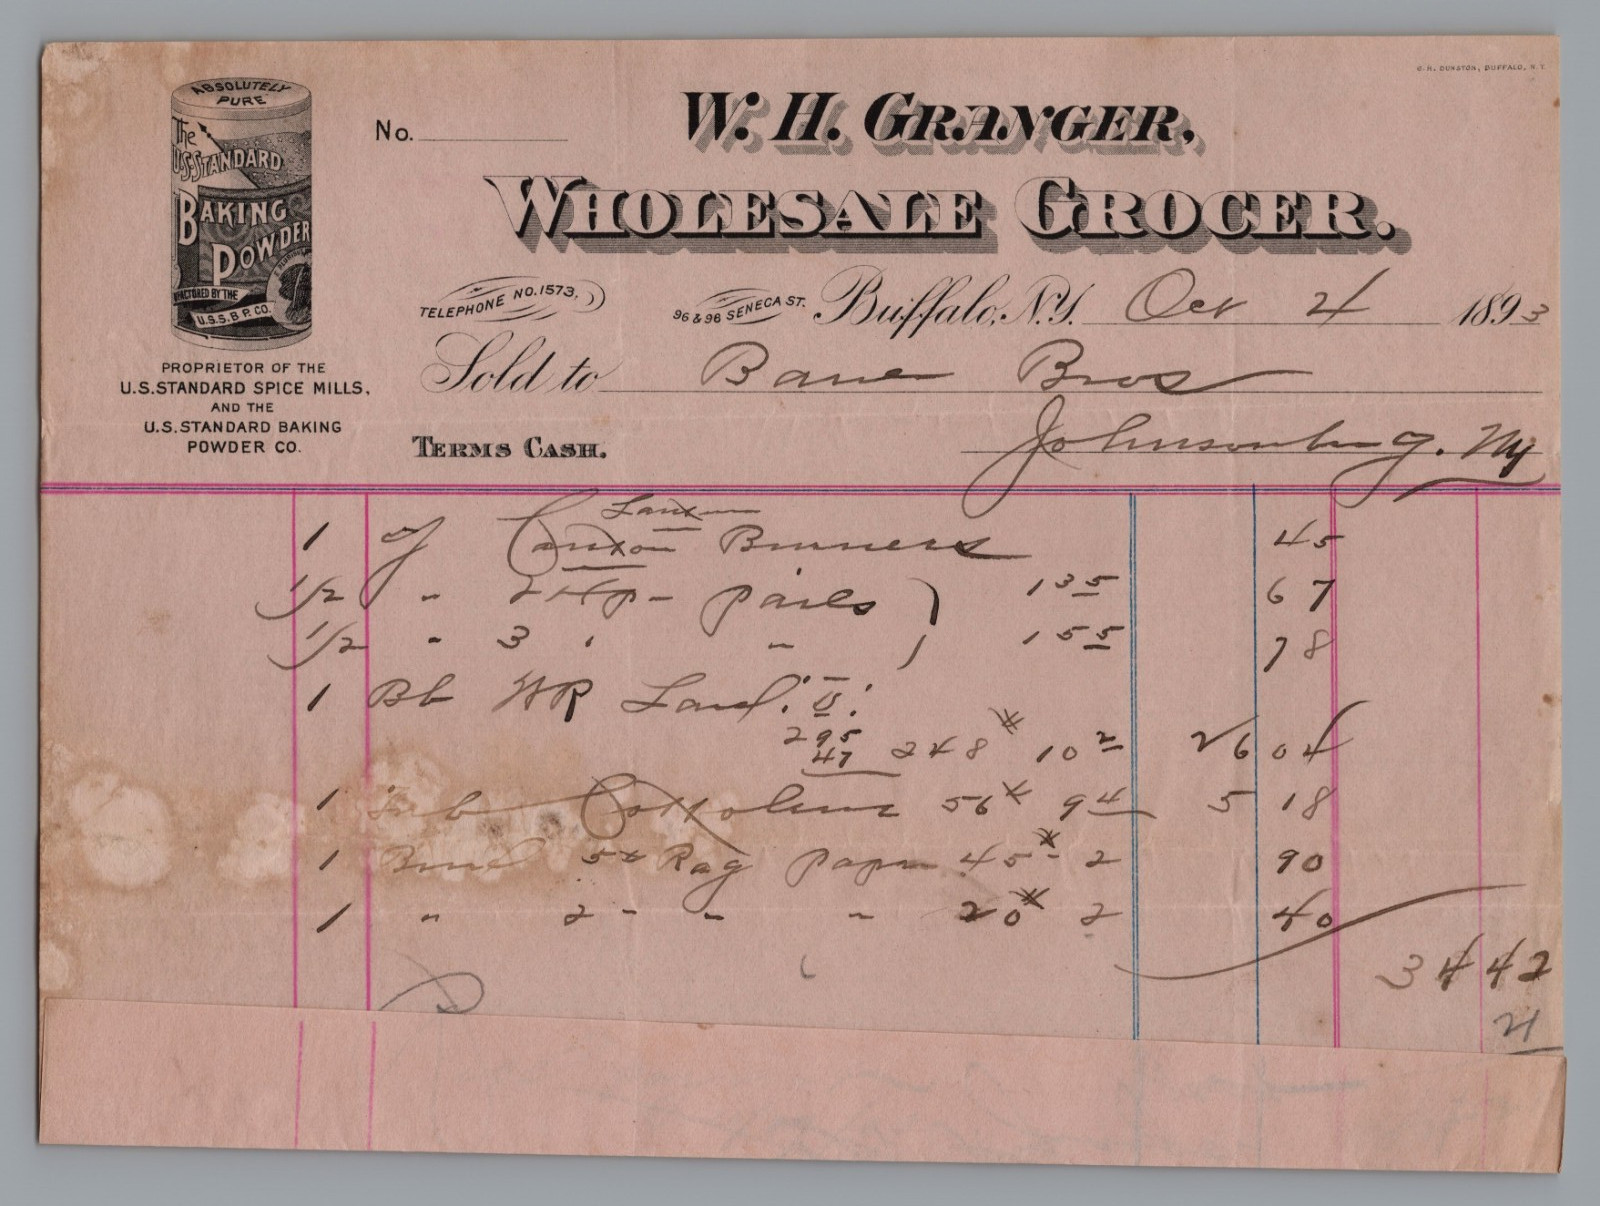 C. R. DUNSTON, BUFFALO, N.Y.
ABSOLUTELY
PURE
The
U.S. STANDARD
BAKING
POWDER
FACTORED BY THE
U.S.S.B.P. CO.
PROPRIETOR OF THE
U.S. STANDARD SPICE MILLS,
AND THE
U.S. STANDARD BAKING
POWDER CO.
No.
W. H. GRANGER,
WHOLESALE GROCER.
TELEPHONE NO. 1573,
96 & 98 SENECA ST. Buffalo, N.Y. Oct 4 1893
Sold to Bauer Bros
TERMS CASH. Johnsonburg. Ny
1 Burners 45
1/2 " 2 Hp - pails 135 67
1/2 " 3 " " 155 78
1 Bb WR Lard
295
47 248 # 10 2 26 04
1 Tub Cottolene 56 # 9 4 5 18
1 5 # Rag paper 45 # - 2 90
1 " 2 - " " 20 # 2 40
34 42
21